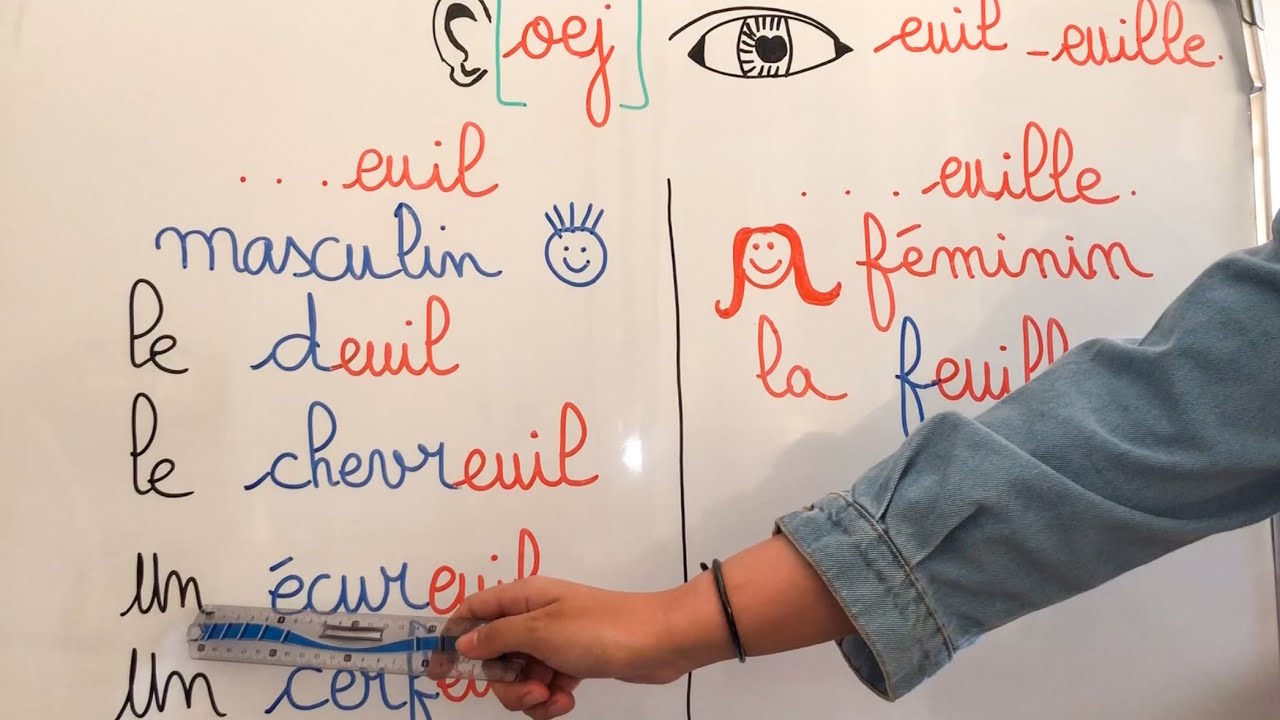 [oej] euil -euille.
...euil
masculin
le deuil
le chevreuil
un écureuil
un cerfeu
....euille.
féminin
la feuill